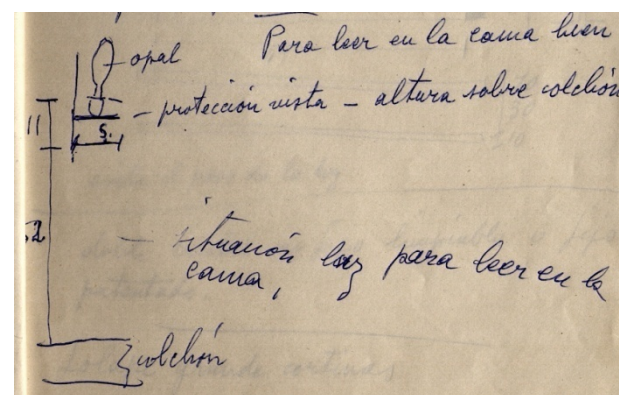 Para leer en la cama bien
opal
- protección vista - altura sobre colchón
11
5.
52
- situación luz para leer en la
cama,
colchón